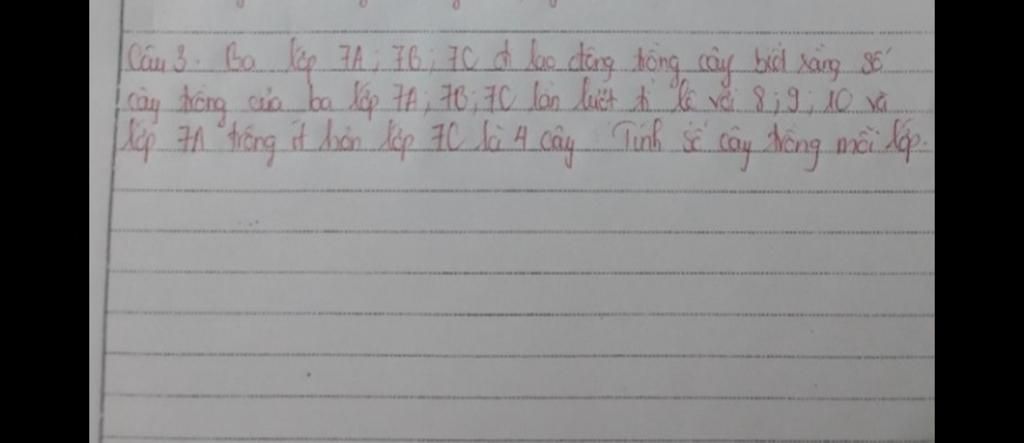 Câu 3. Ba lớp 7A; 7B; 7C đi lao động trồng cây biết rằng số
cây trồng của ba lớp 7A; 7B; 7C lần lượt tỉ lệ với 8; 9; 10 và
lớp 7A trồng ít hơn lớp 7C là 4 cây Tính số cây trồng mỗi lớp.